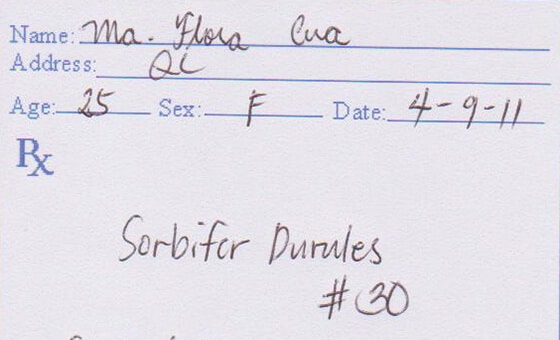 Name: Ma. Flora Cua
Address: QC
Age: 25 Sex: F Date: 4-9-11
Rx
Sorbifer Durules
#30